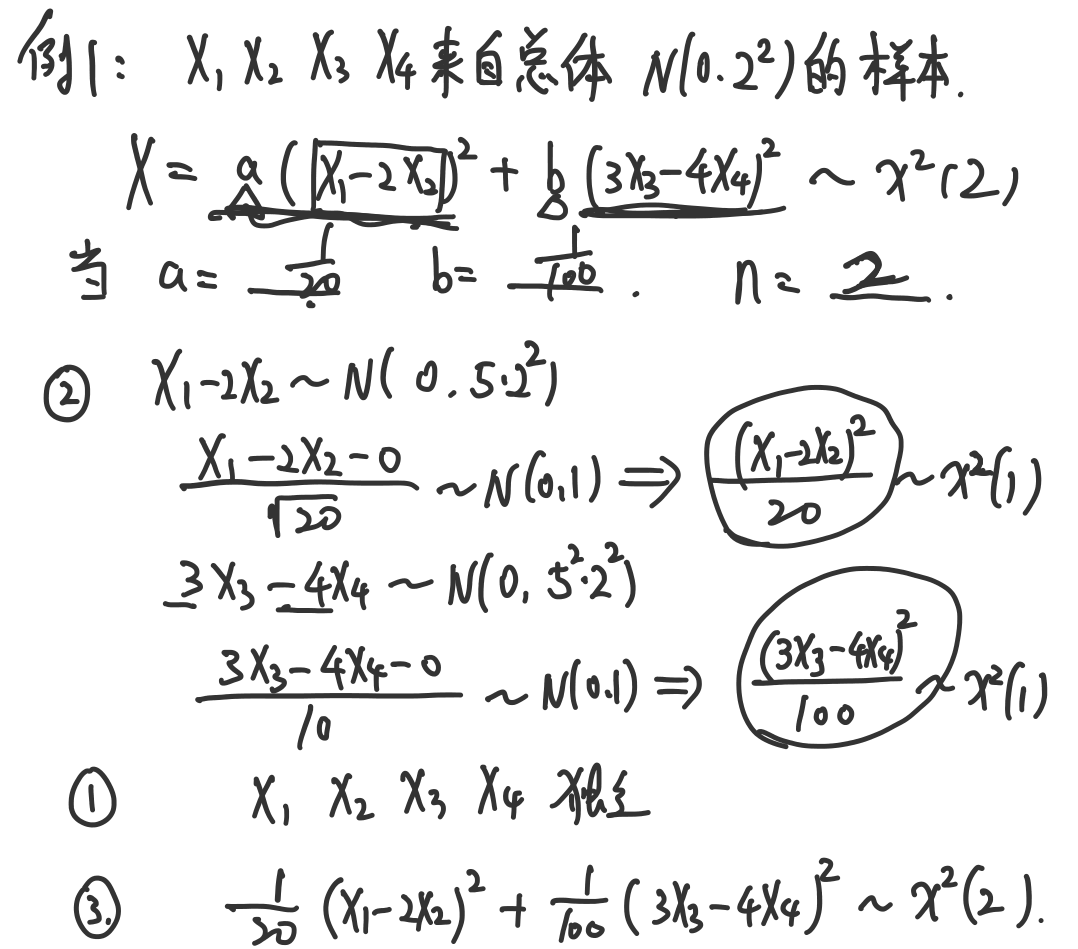 例1: X₁ X₂ X₃ X₄来自总体 N(0.2²)的样本.
X = a(X₁-2X₂)² + b(3X₃-4X₄)² ~ x²(2)
当 a= 1/20 b= 1/100 . n= 2 .
② X₁-2X₂ ~ N(0.5·2²)
(X₁-2X₂-0)/√20 ~ N(0,1) ⇒ (X₁-2X₂)²/20 ~ x²(1)
3X₃-4X₄ ~ N(0,5²·2²)
(3X₃-4X₄-0)/10 ~ N(0.1) ⇒ (3X₃-4X₄)²/100 ~ x²(1)
① X₁ X₂ X₃ X₄ 独立
③. 1/20 (X₁-2X₂)² + 1/100 (3X₃-4X₄)² ~ x²(2).